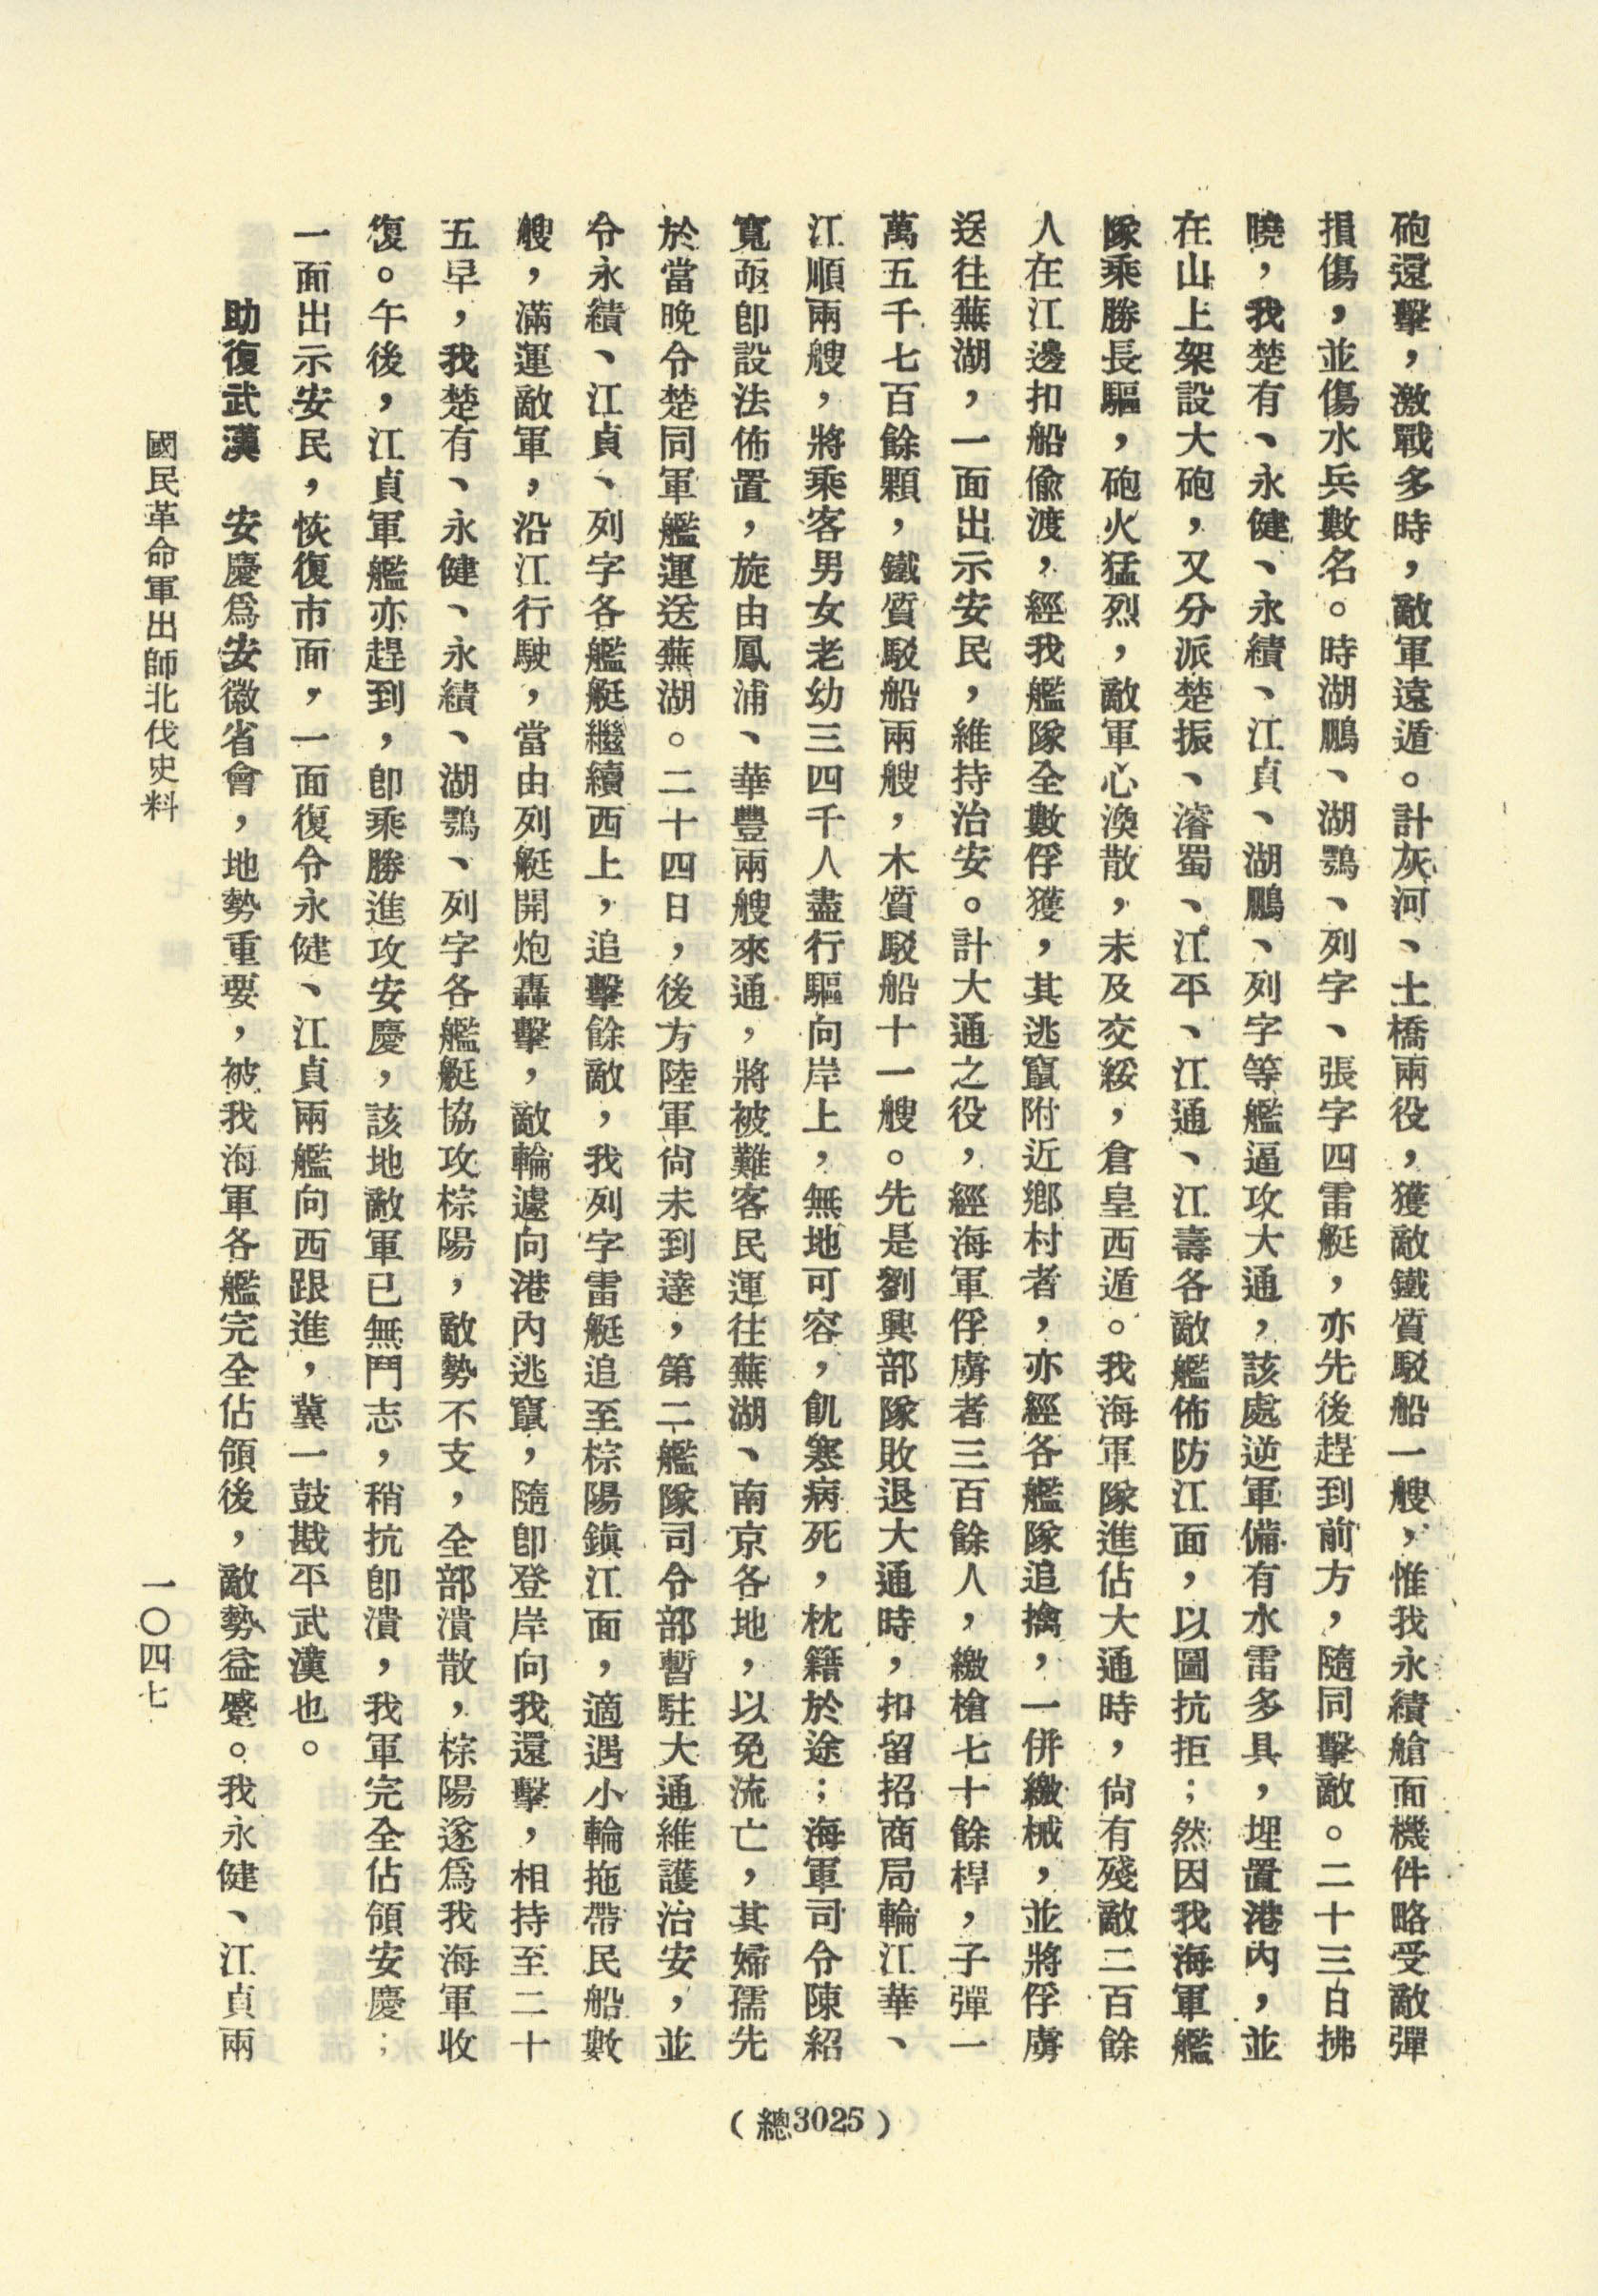 砲還擊，激戰多時，敵軍遠遁。計灰河、土橋兩役，獲敵鐵質駁船一艘，惟我永績艙面機件略受敵彈
損傷，並傷水兵數名。時湖鵬、湖鶚、列字、張字四雷艇，亦先後趕到前方，隨同擊敵。二十三日拂
曉，我楚有、永健、永績、江貞、湖鵬、列字等艦逼攻大通，該處逆軍備有水雷多具，埋置港內，並
在山上架設大砲，又分派楚振、濬蜀、江平、江通、江壽各敵艦佈防江面，以圖抗拒；然因我海軍艦
隊乘勝長驅，砲火猛烈，敵軍心渙散，未及交綏，倉皇西遁。我海軍隊進佔大通時，尙有殘敵二百餘
人在江邊扣船偷渡，經我艦隊全數俘獲，其逃竄附近鄉村者，亦經各艦隊追擒，一併繳械，並將俘虜
送往蕪湖，一面出示安民，維持治安。計大通之役，經海軍俘虜者三百餘人，繳槍七十餘桿，子彈一
萬五千七百餘顆，鐵質駁船兩艘，木質駁船十一艘。先是劉興部隊敗退大通時，扣留招商局輪江華、
江順兩艘，將乘客男女老幼三四千人盡行驅向岸上，無地可容，飢寒病死，枕籍於途；海軍司令陳紹
寬亟卽設法佈置，旋由鳳浦、華豐兩艘來通，將被難客民運往蕪湖、南京各地，以免流亡，其婦孺先
於當晚令楚同軍艦運送蕪湖。二十四日，後方陸軍尙未到達，第二艦隊司令部暫駐大通維護治安，並
令永績、江貞、列字各艦艇繼續西上，追擊餘敵，我列字雷艇追至棕陽鎮江面，適遇小輪拖帶民船數
艘，滿運敵軍，沿江行駛，當由列艇開炮轟擊，敵輪遽向港內逃竄，隨卽登岸向我還擊，相持至二十
五早，我楚有、永健、永績、湖鶚、列字各艦艇協攻棕陽，敵勢不支，全部潰散，棕陽遂爲我海軍收
復。午後，江貞軍艦亦趕到，卽乘勝進攻安慶，該地敵軍已無鬥志，稍抗卽潰，我軍完全佔領安慶；
一面出示安民，恢復市面，一面復令永健、江貞兩艦向西跟進，冀一鼓戡平武漢也。
助復武漢　安慶爲安徽省會，地勢重要，被我海軍各艦完全佔領後，敵勢益蹙。我永健、江貞兩
國民革命軍出師北伐史料
一〇四七
（總3025）